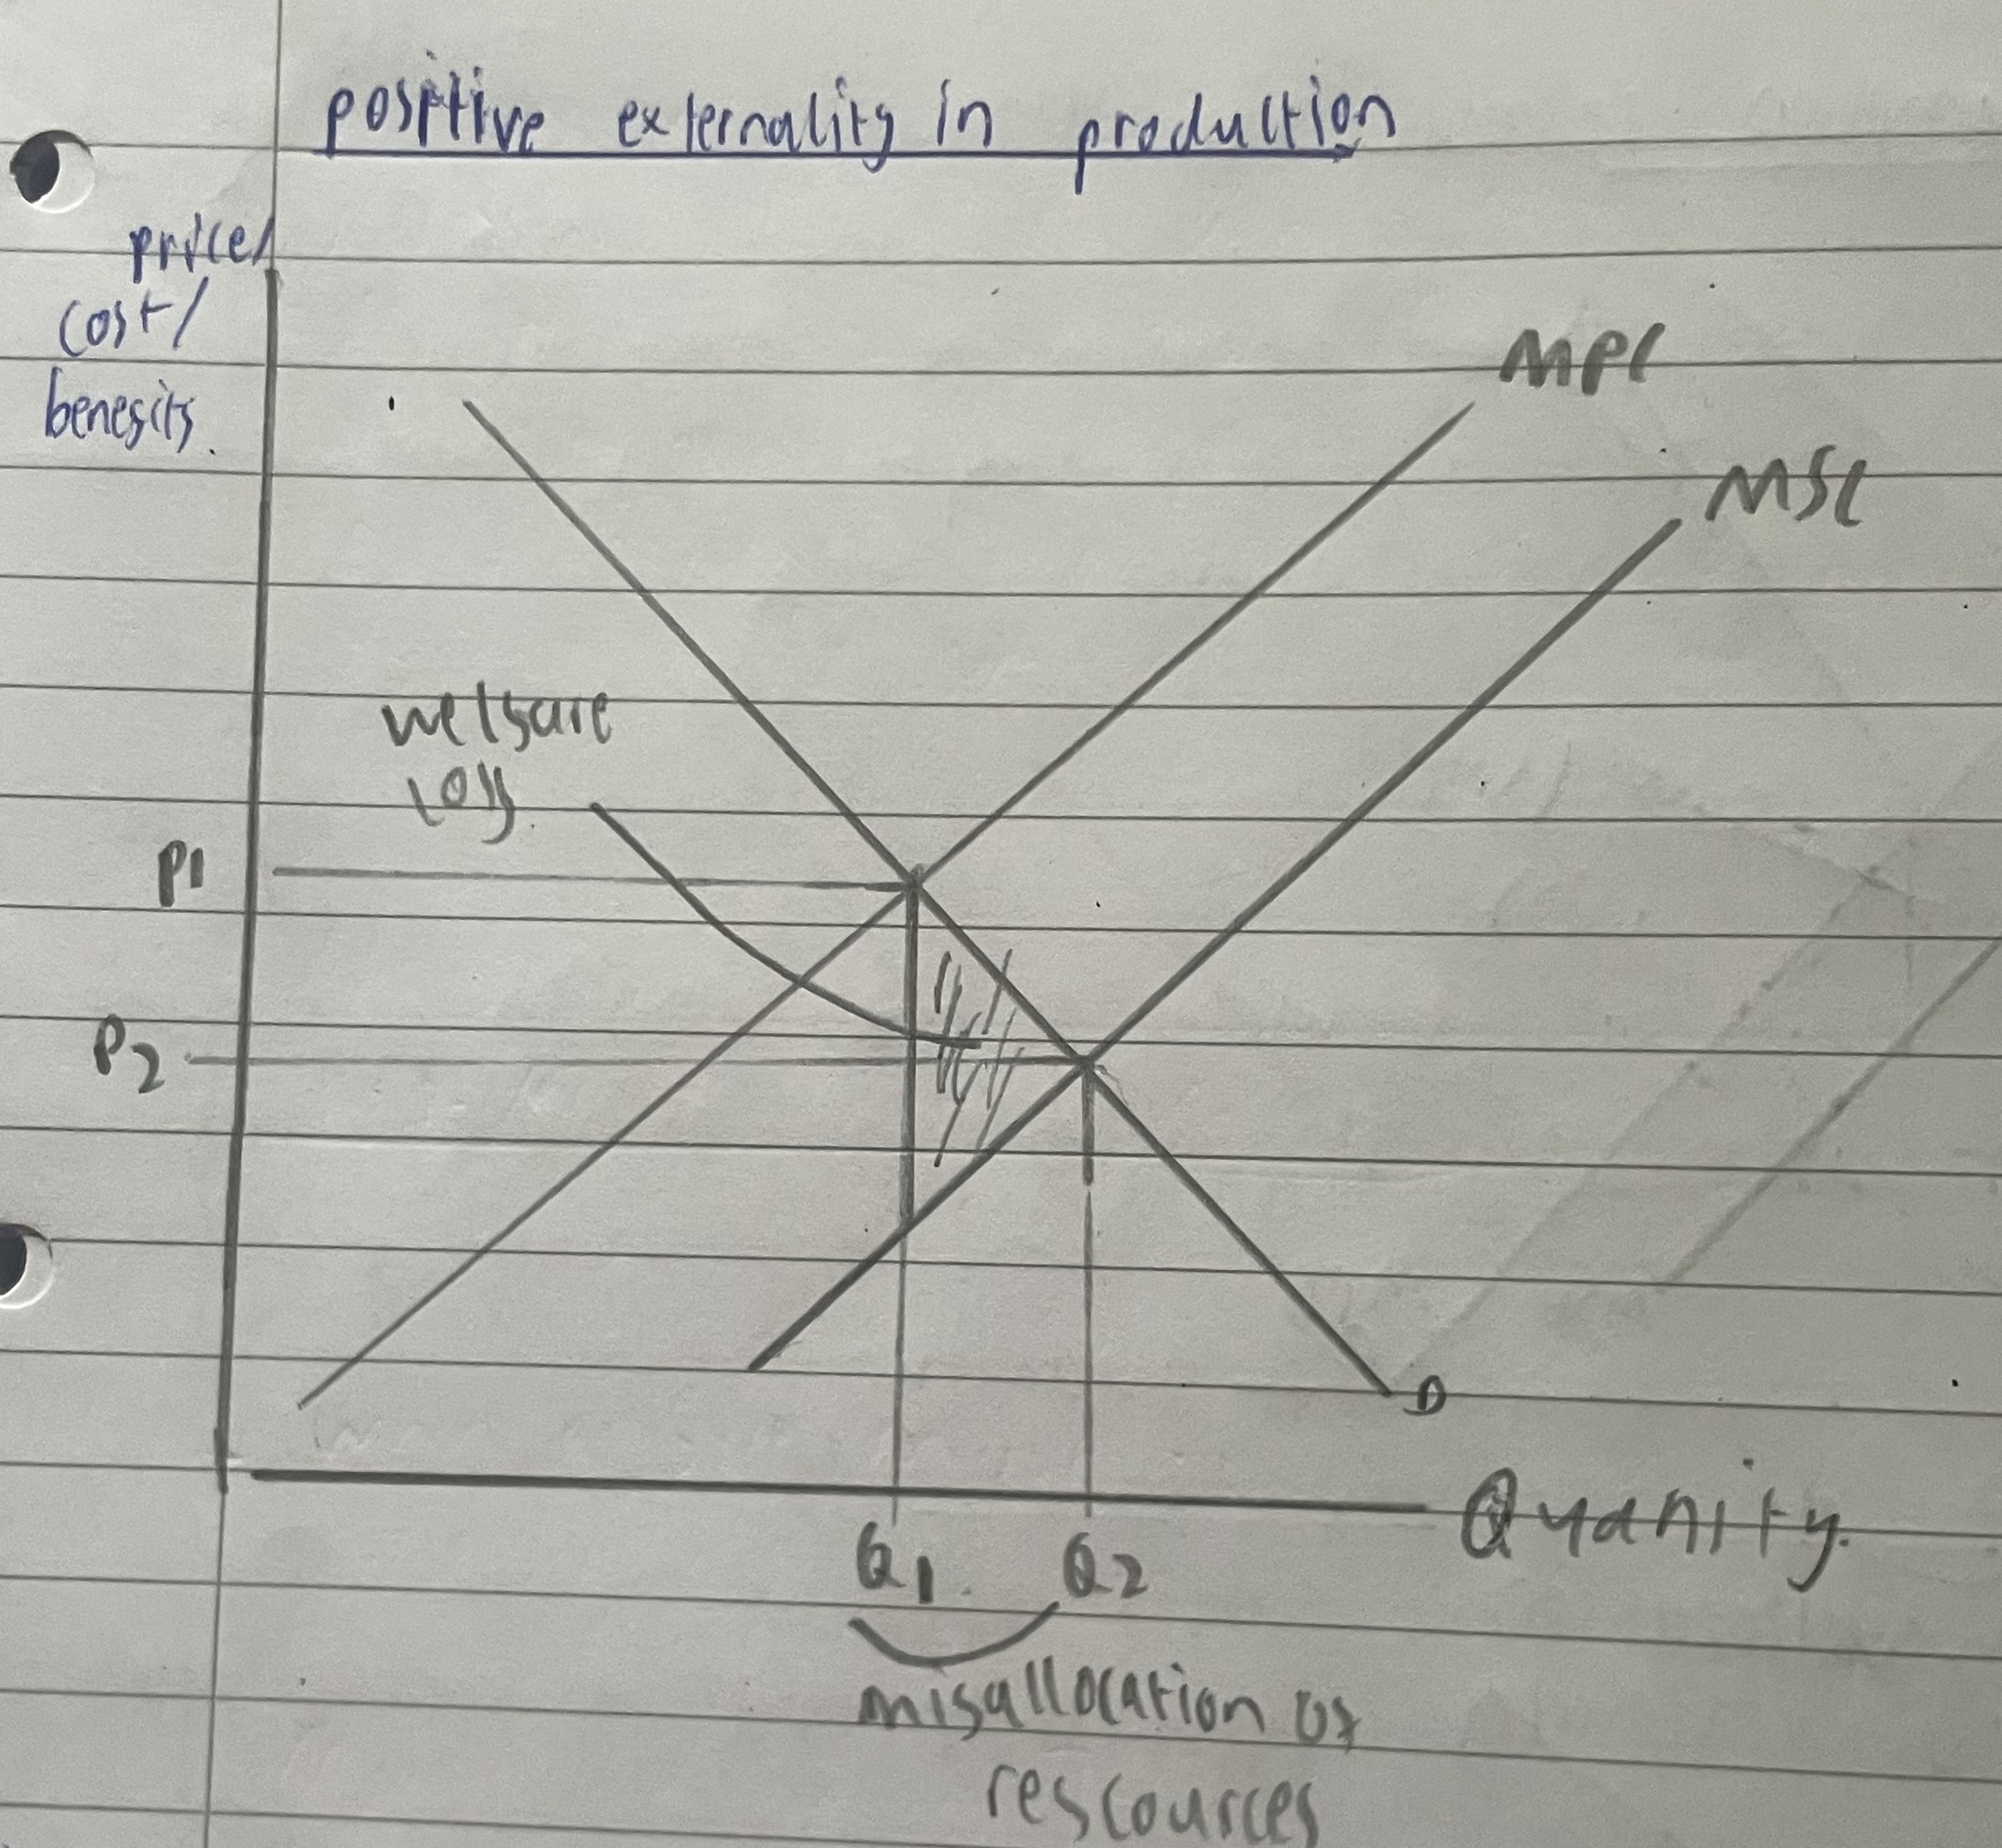 positive externality in production
price/
cost/
benefits
MPC
MSC
welfare
loss
P1
P2
D
Quanity.
Q1 Q2
misallocation of
rescources